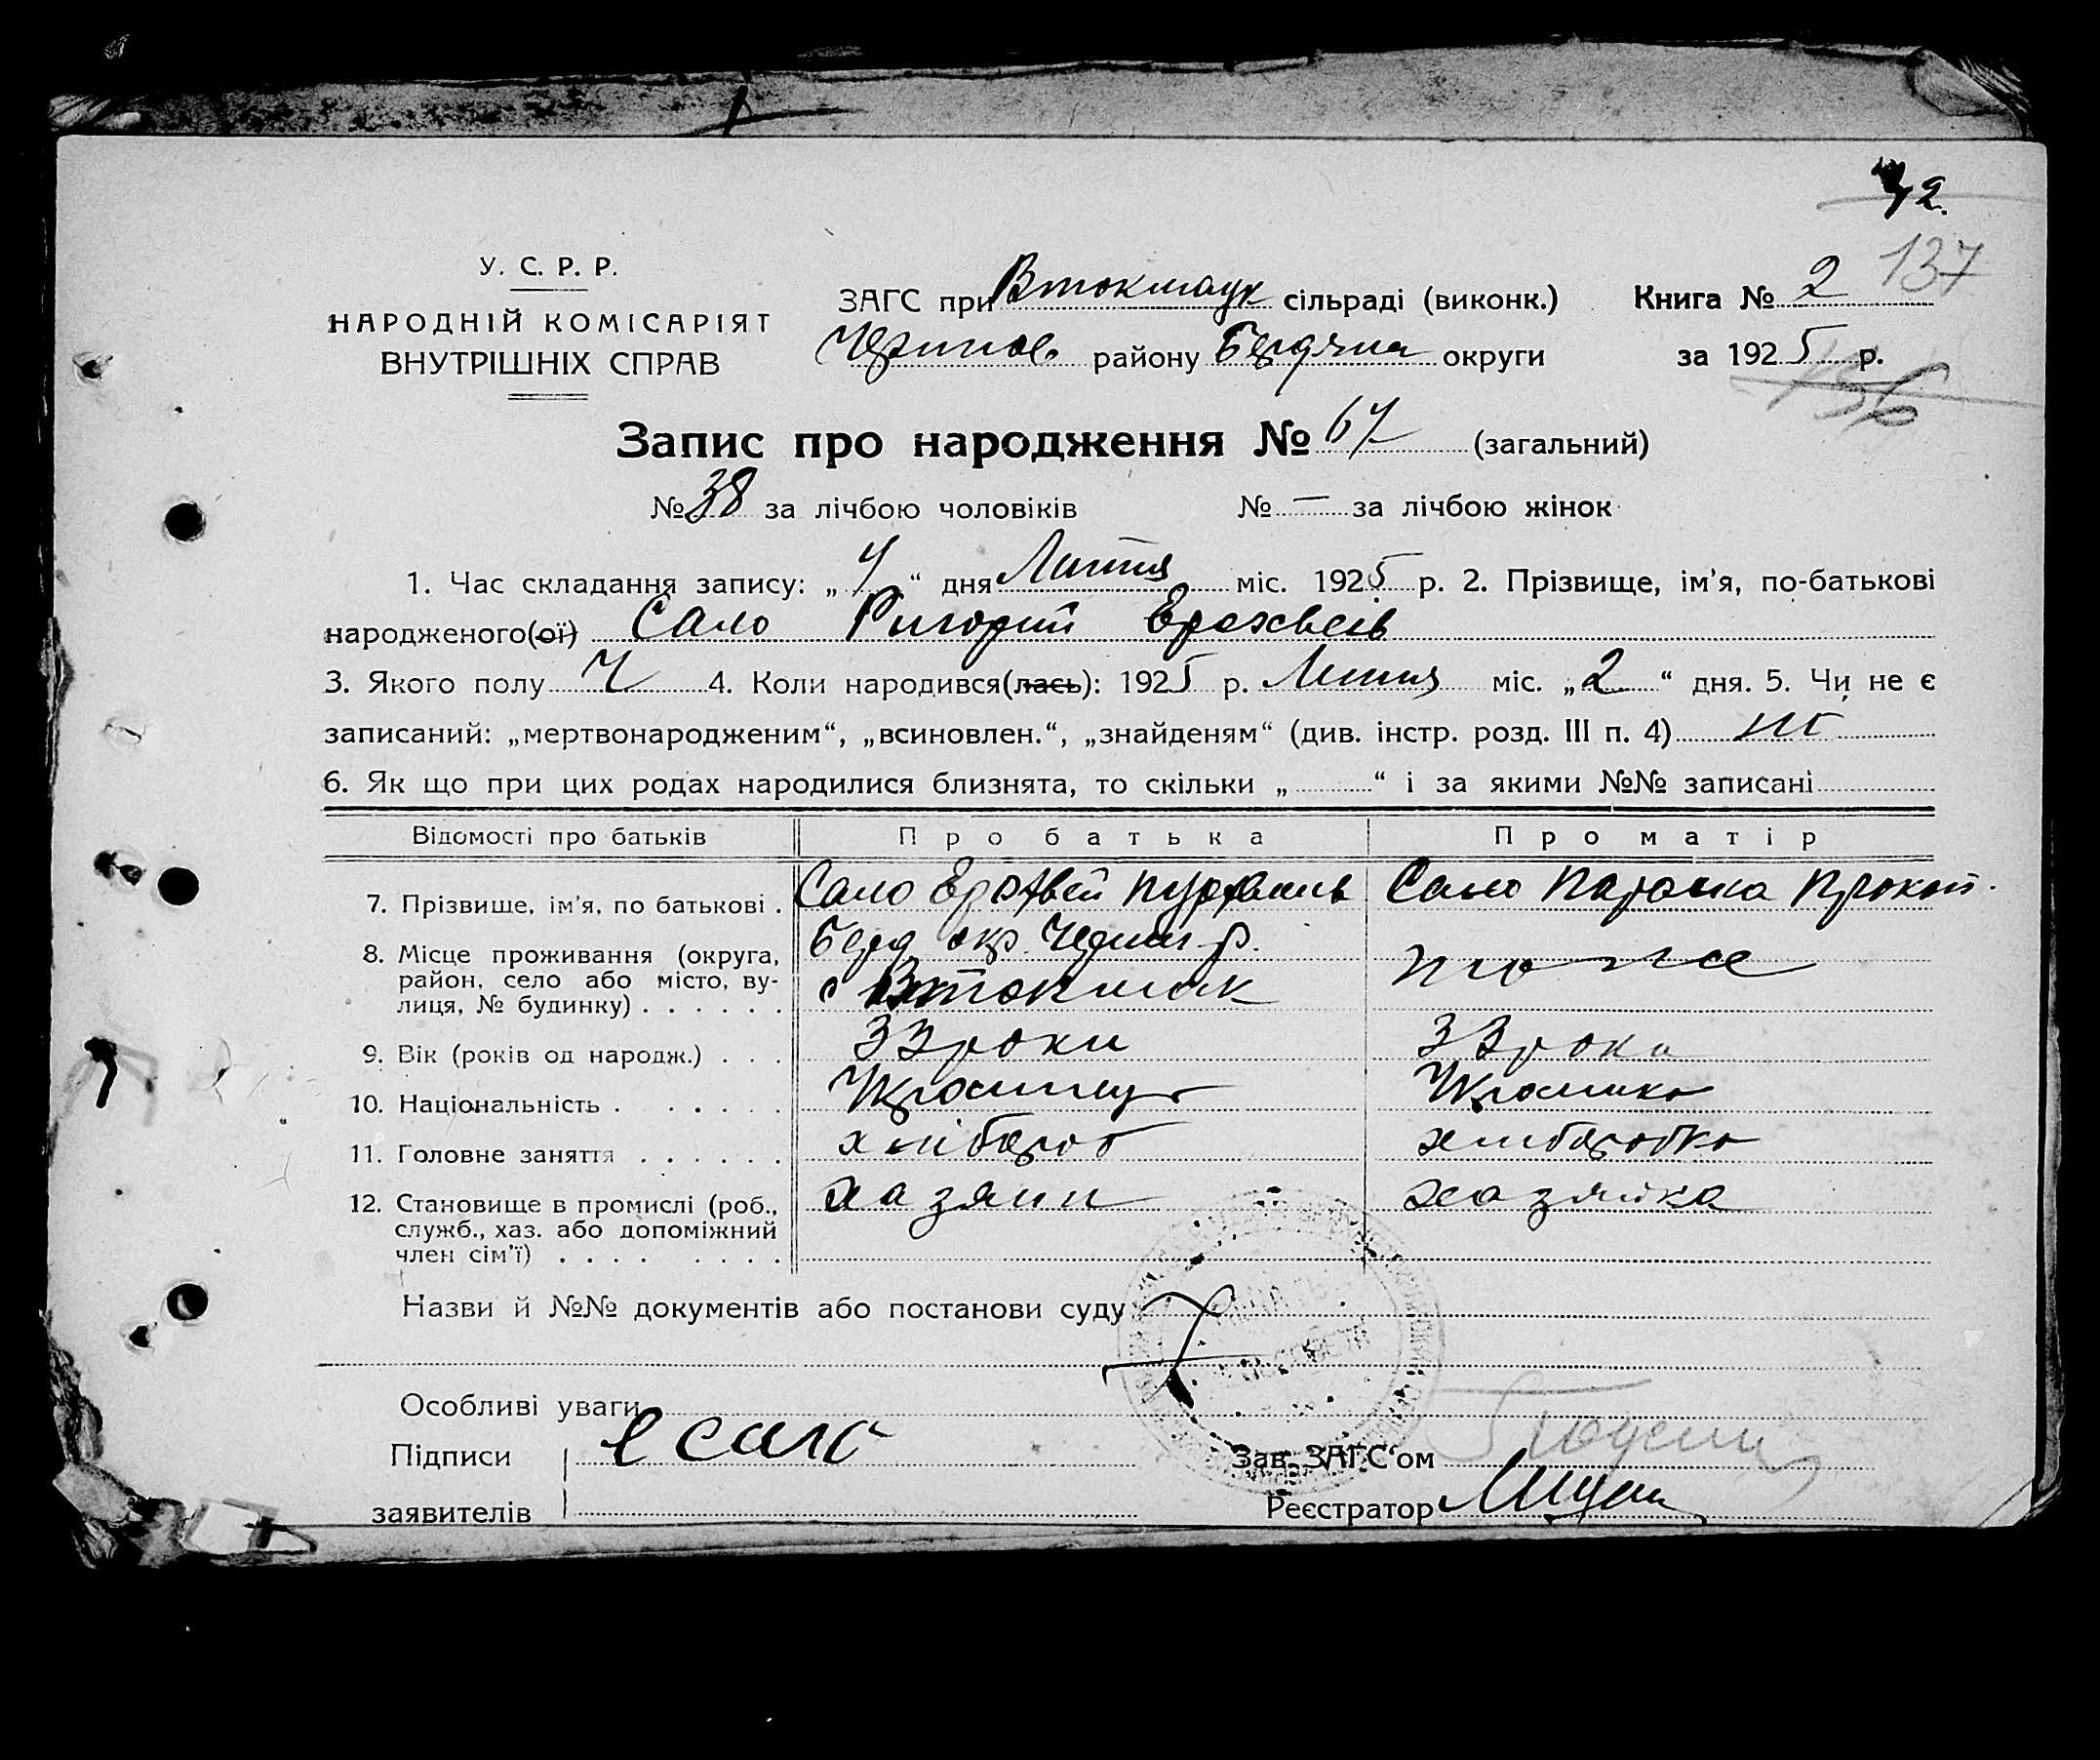 42.
137
У. С. Р. Р.
НАРОДНІЙ КОМІСАРІЯТ
ВНУТРІШНІХ СПРАВ
ЗАГС при Втокмацк сільраді (виконк.) Книга № 2
району Бердянск округи за 1925 р.
136
Запис про народження № 67 (загальний)
№ 38 за лічбою чоловіків № — за лічбою жінок
1. Час складання запису: „4“ дня Липня міс. 1925 р. 2. Прізвище, ім’я, по-батькові
народженого(ої) Сало Григорий
3. Якого полу Ч 4. Коли народився(лась): 1925 р. Липня міс. „2“ дня. 5. Чи не є
записаний: „мертвонародженим“, „всиновлен.“, „знайденям“ (див. інстр. розд. III п. 4) ні
6. Як що при цих родах народилися близнята, то скільки „ “ і за якими №№ записані
Відомості про батьків Про батька Про матір
7. Прізвише, ім’я, по батькові . Сало Сало Параска Прокоп.
8. Місце проживання (округа, Берд окр. Черниг р. тоже
район, село або місто, ву-
лиця, № будинку) . . . . . . с Втокмак
9. Вік (років од народж.) . . . 33 роки 33 роки
10. Національність . . . . . . Українець Українка
11. Головне заняття . . . . . . хлібороб хліборобка
12. Становище в промислі (роб., хазяин хазяйка
служб., хаз. або допоміжний
член сім’ї) . . . . . . . .
Назви й №№ документів або постанови суду
Особливі уваги
Підписи Е Сало Зав. ЗАГС‘ом
заявителів Реєстратор